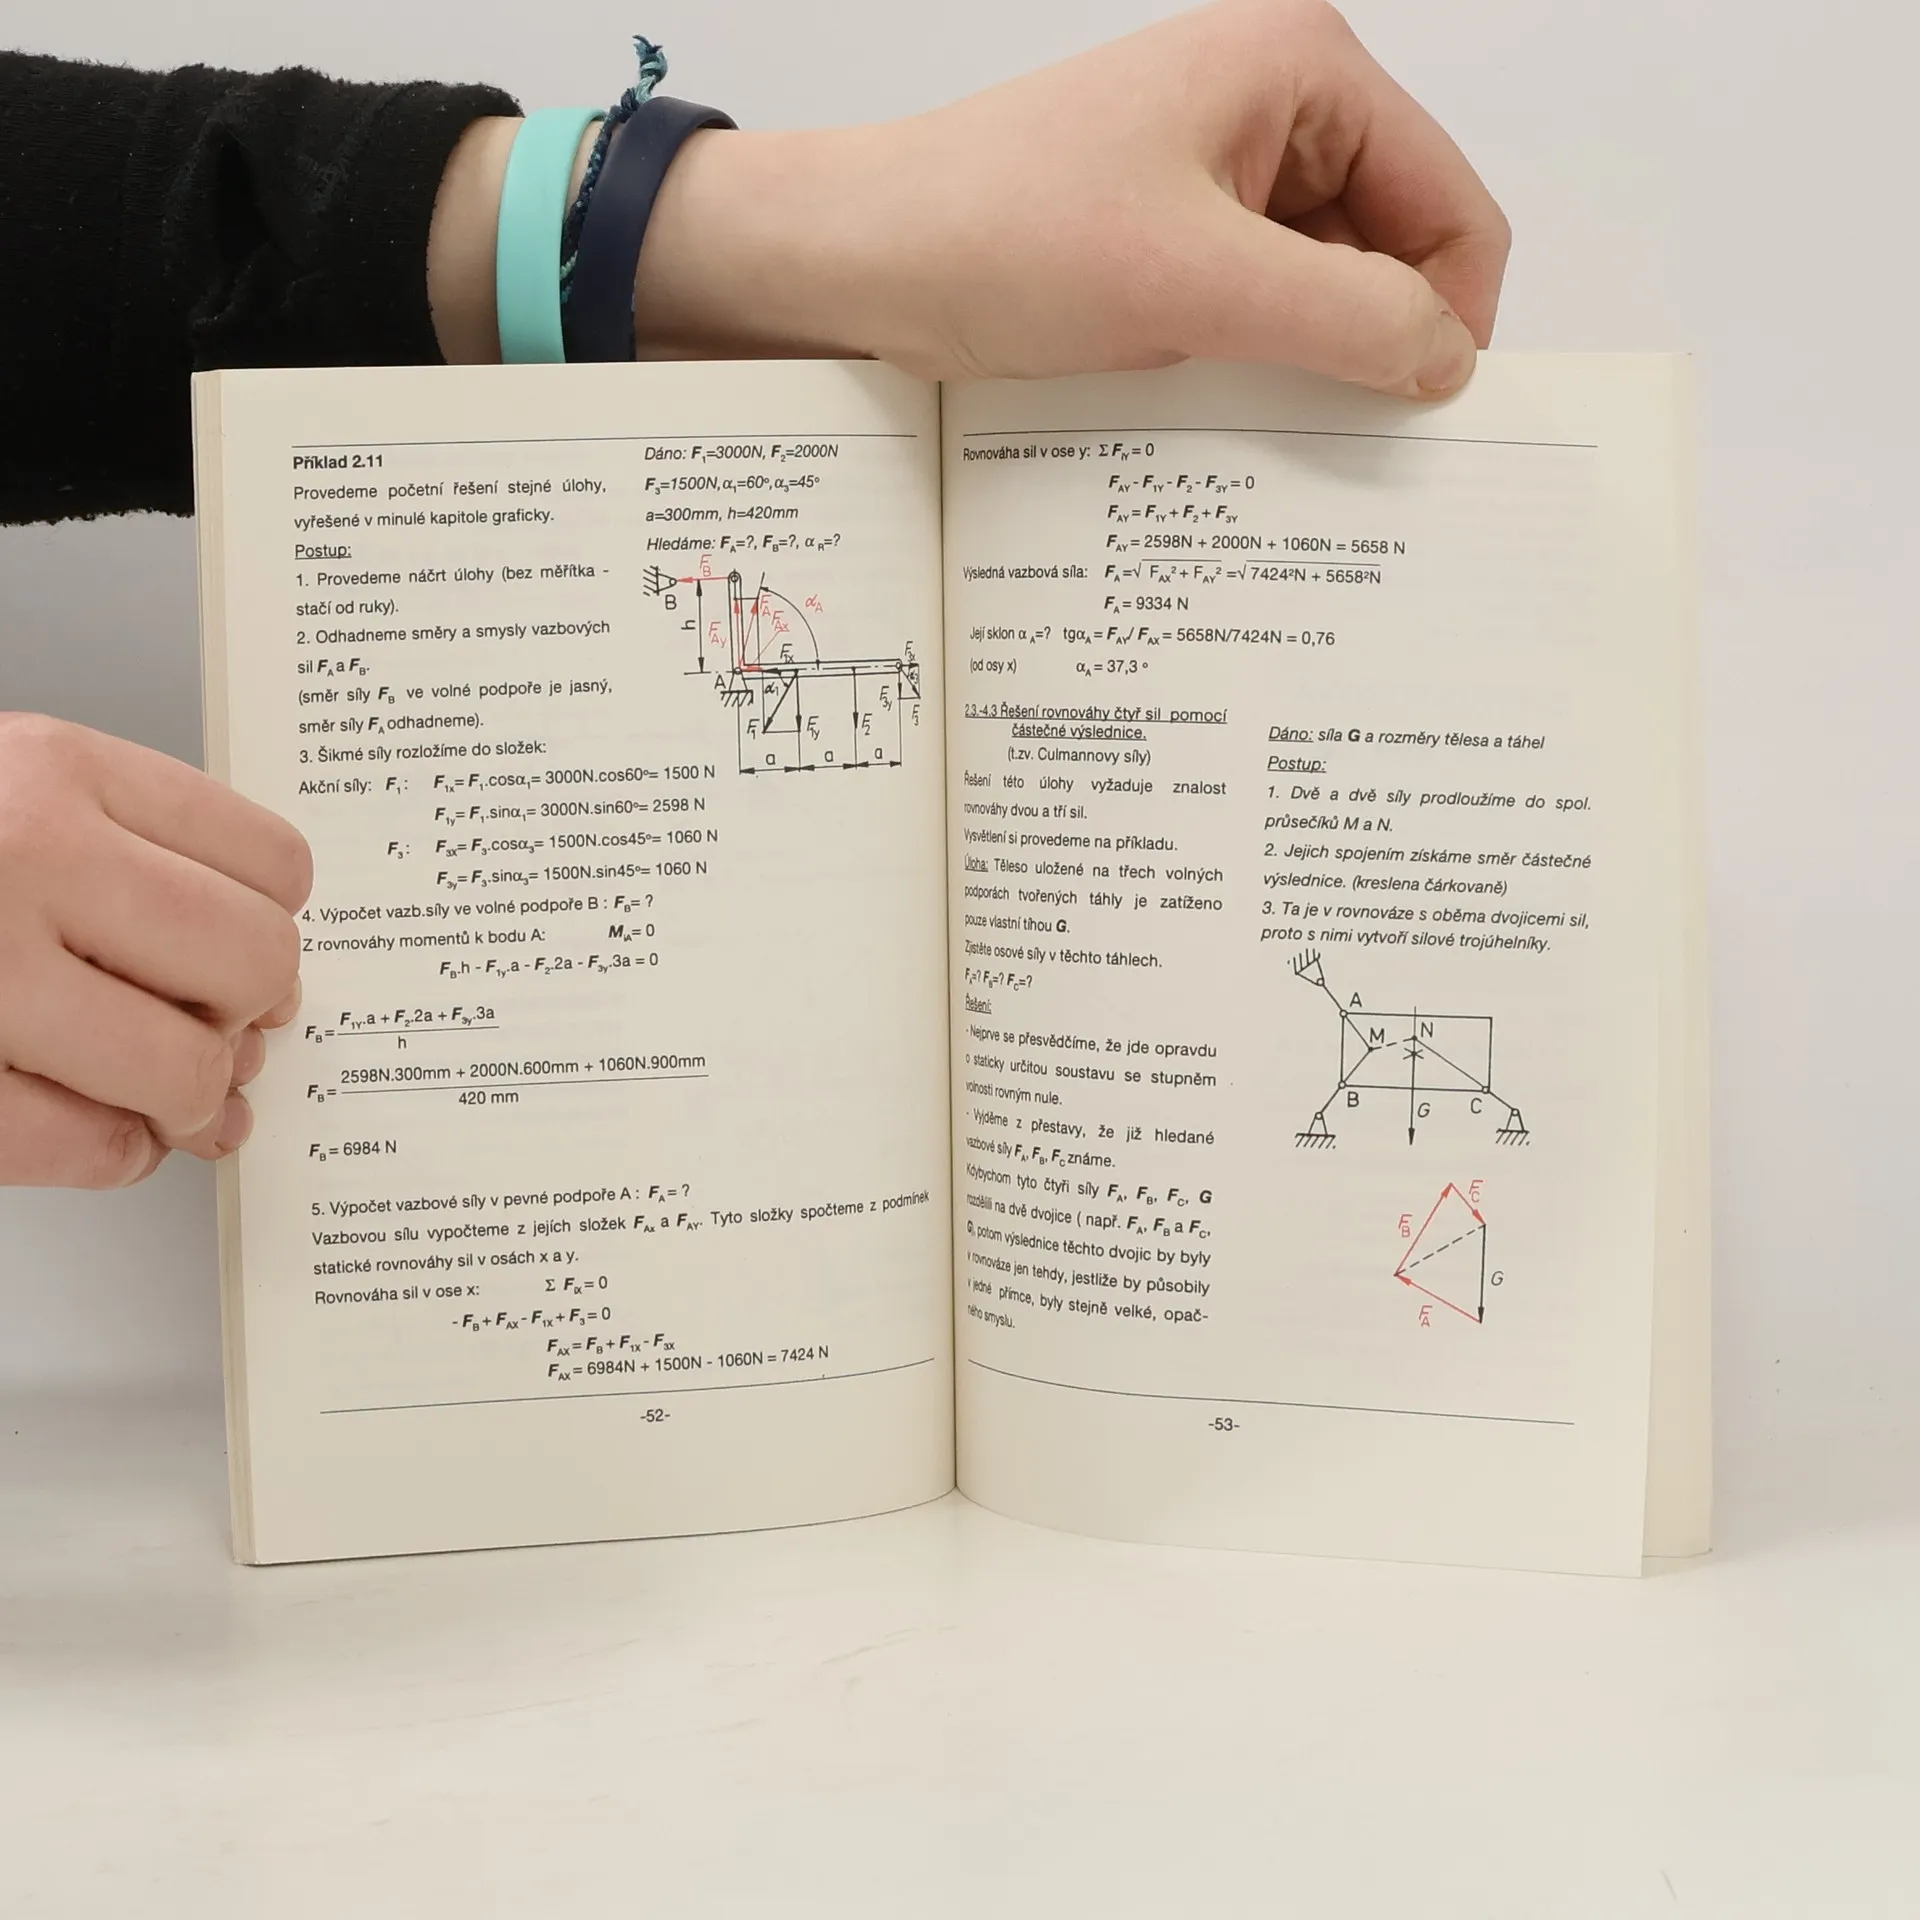 Příklad 2.11
Provedeme početní řešení stejné úlohy,
vyřešené v minulé kapitole graficky.
Postup:
1. Provedeme náčrt úlohy (bez měřítka -
stačí od ruky).
2. Odhadneme směry a smysly vazbových
sil F_A a F_B.
(směr síly F_B ve volné podpoře je jasný,
směr síly F_A odhadneme).
3. Šikmé síly rozložíme do složek:
Dáno: F₁=3000N, F₂=2000N
F₃=1500N, α₁=60°, α₃=45°
a=300mm, h=420mm
Hledáme: F_A=?, F_B=?, α_R=?
F_B
B
h
F_Ay
F_A
F_Ax
α_A
F_1x
F_3x
A
α₁
F_3y
F₁
F_1y
F₂
F₃
a a a
Akční síly: F₁: F_1x= F₁.cosα₁= 3000N.cos60°= 1500 N
F_1y= F₁.sinα₁= 3000N.sin60°= 2598 N
F₃: F_3x= F₃.cosα₃= 1500N.cos45°= 1060 N
F_3y= F₃.sinα₃= 1500N.sin45°= 1060 N
4. Výpočet vazb.síly ve volné podpoře B : F_B= ?
Z rovnováhy momentů k bodu A: M_iA= 0
F_B.h - F_1y.a - F₂.2a - F_3y.3a = 0
F_B= F_1Y.a + F₂.2a + F_3y.3a
h
F_B= 2598N.300mm + 2000N.600mm + 1060N.900mm
420 mm
F_B= 6984 N
5. Výpočet vazbové síly v pevné podpoře A : F_A= ?
Vazbovou sílu vypočteme z jejích složek F_Ax a F_AY. Tyto složky spočteme z podmínek
statické rovnováhy sil v osách x a y.
Rovnováha sil v ose x: Σ F_iX= 0
- F_B + F_AX - F_1X + F₃ = 0
F_AX = F_B + F_1X - F_3X
F_AX = 6984N + 1500N - 1060N = 7424 N
-52-
Rovnováha sil v ose y: Σ F_iY= 0
F_AY - F_1Y - F₂ - F_3Y = 0
F_AY = F_1Y + F₂ + F_3Y
F_AY = 2598N + 2000N + 1060N = 5658 N
Výsledná vazbová síla: F_A =√ F_AX² + F_AY² =√ 7424²N + 5658²N
F_A = 9334 N
Její sklon α_A=? tgα_A = F_AY/ F_AX = 5658N/7424N = 0,76
(od osy x) α_A = 37,3 °
2.3.-4.3 Řešení rovnováhy čtyř sil pomocí
částečné výslednice.
(t.zv. Culmannovy síly)
Řešení této úlohy vyžaduje znalost
rovnováhy dvou a tří sil.
Vysvětlení si provedeme na příkladu.
Úloha: Těleso uložené na třech volných
podporách tvořených táhly je zatíženo
pouze vlastní tíhou G.
Zjistěte osové síly v těchto táhlech.
F_A=? F_B=? F_C=?
Řešení:
- Nejprve se přesvědčíme, že jde opravdu
o staticky určitou soustavu se stupněm
volnosti rovným nule.
- Vyjděme z přestavy, že již hledané
vazbové síly F_A, F_B, F_C známe.
Kdybychom tyto čtyři síly F_A, F_B, F_C, G
rozdělili na dvě dvojice ( např. F_A, F_B a F_C,
G), potom výslednice těchto dvojic by byly
v rovnováze jen tehdy, jestliže by působily
v jedné přímce, byly stejně velké, opač-
ného smyslu.
Dáno: síla G a rozměry tělesa a táhel
Postup:
1. Dvě a dvě síly prodloužíme do spol.
průsečíků M a N.
2. Jejich spojením získáme směr částečné
výslednice. (kreslena čárkovaně)
3. Ta je v rovnováze s oběma dvojicemi sil,
proto s nimi vytvoří silové trojúhelníky.
A
M N
B G C
F_C
F_B
G
F_A
-53-